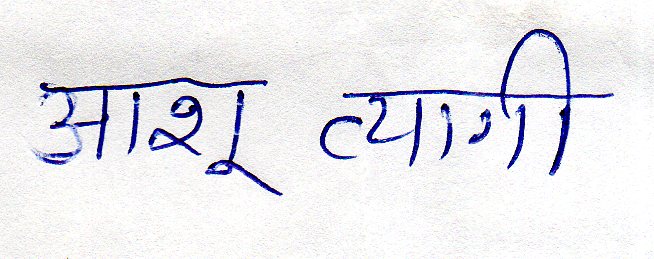 आशू त्यागी